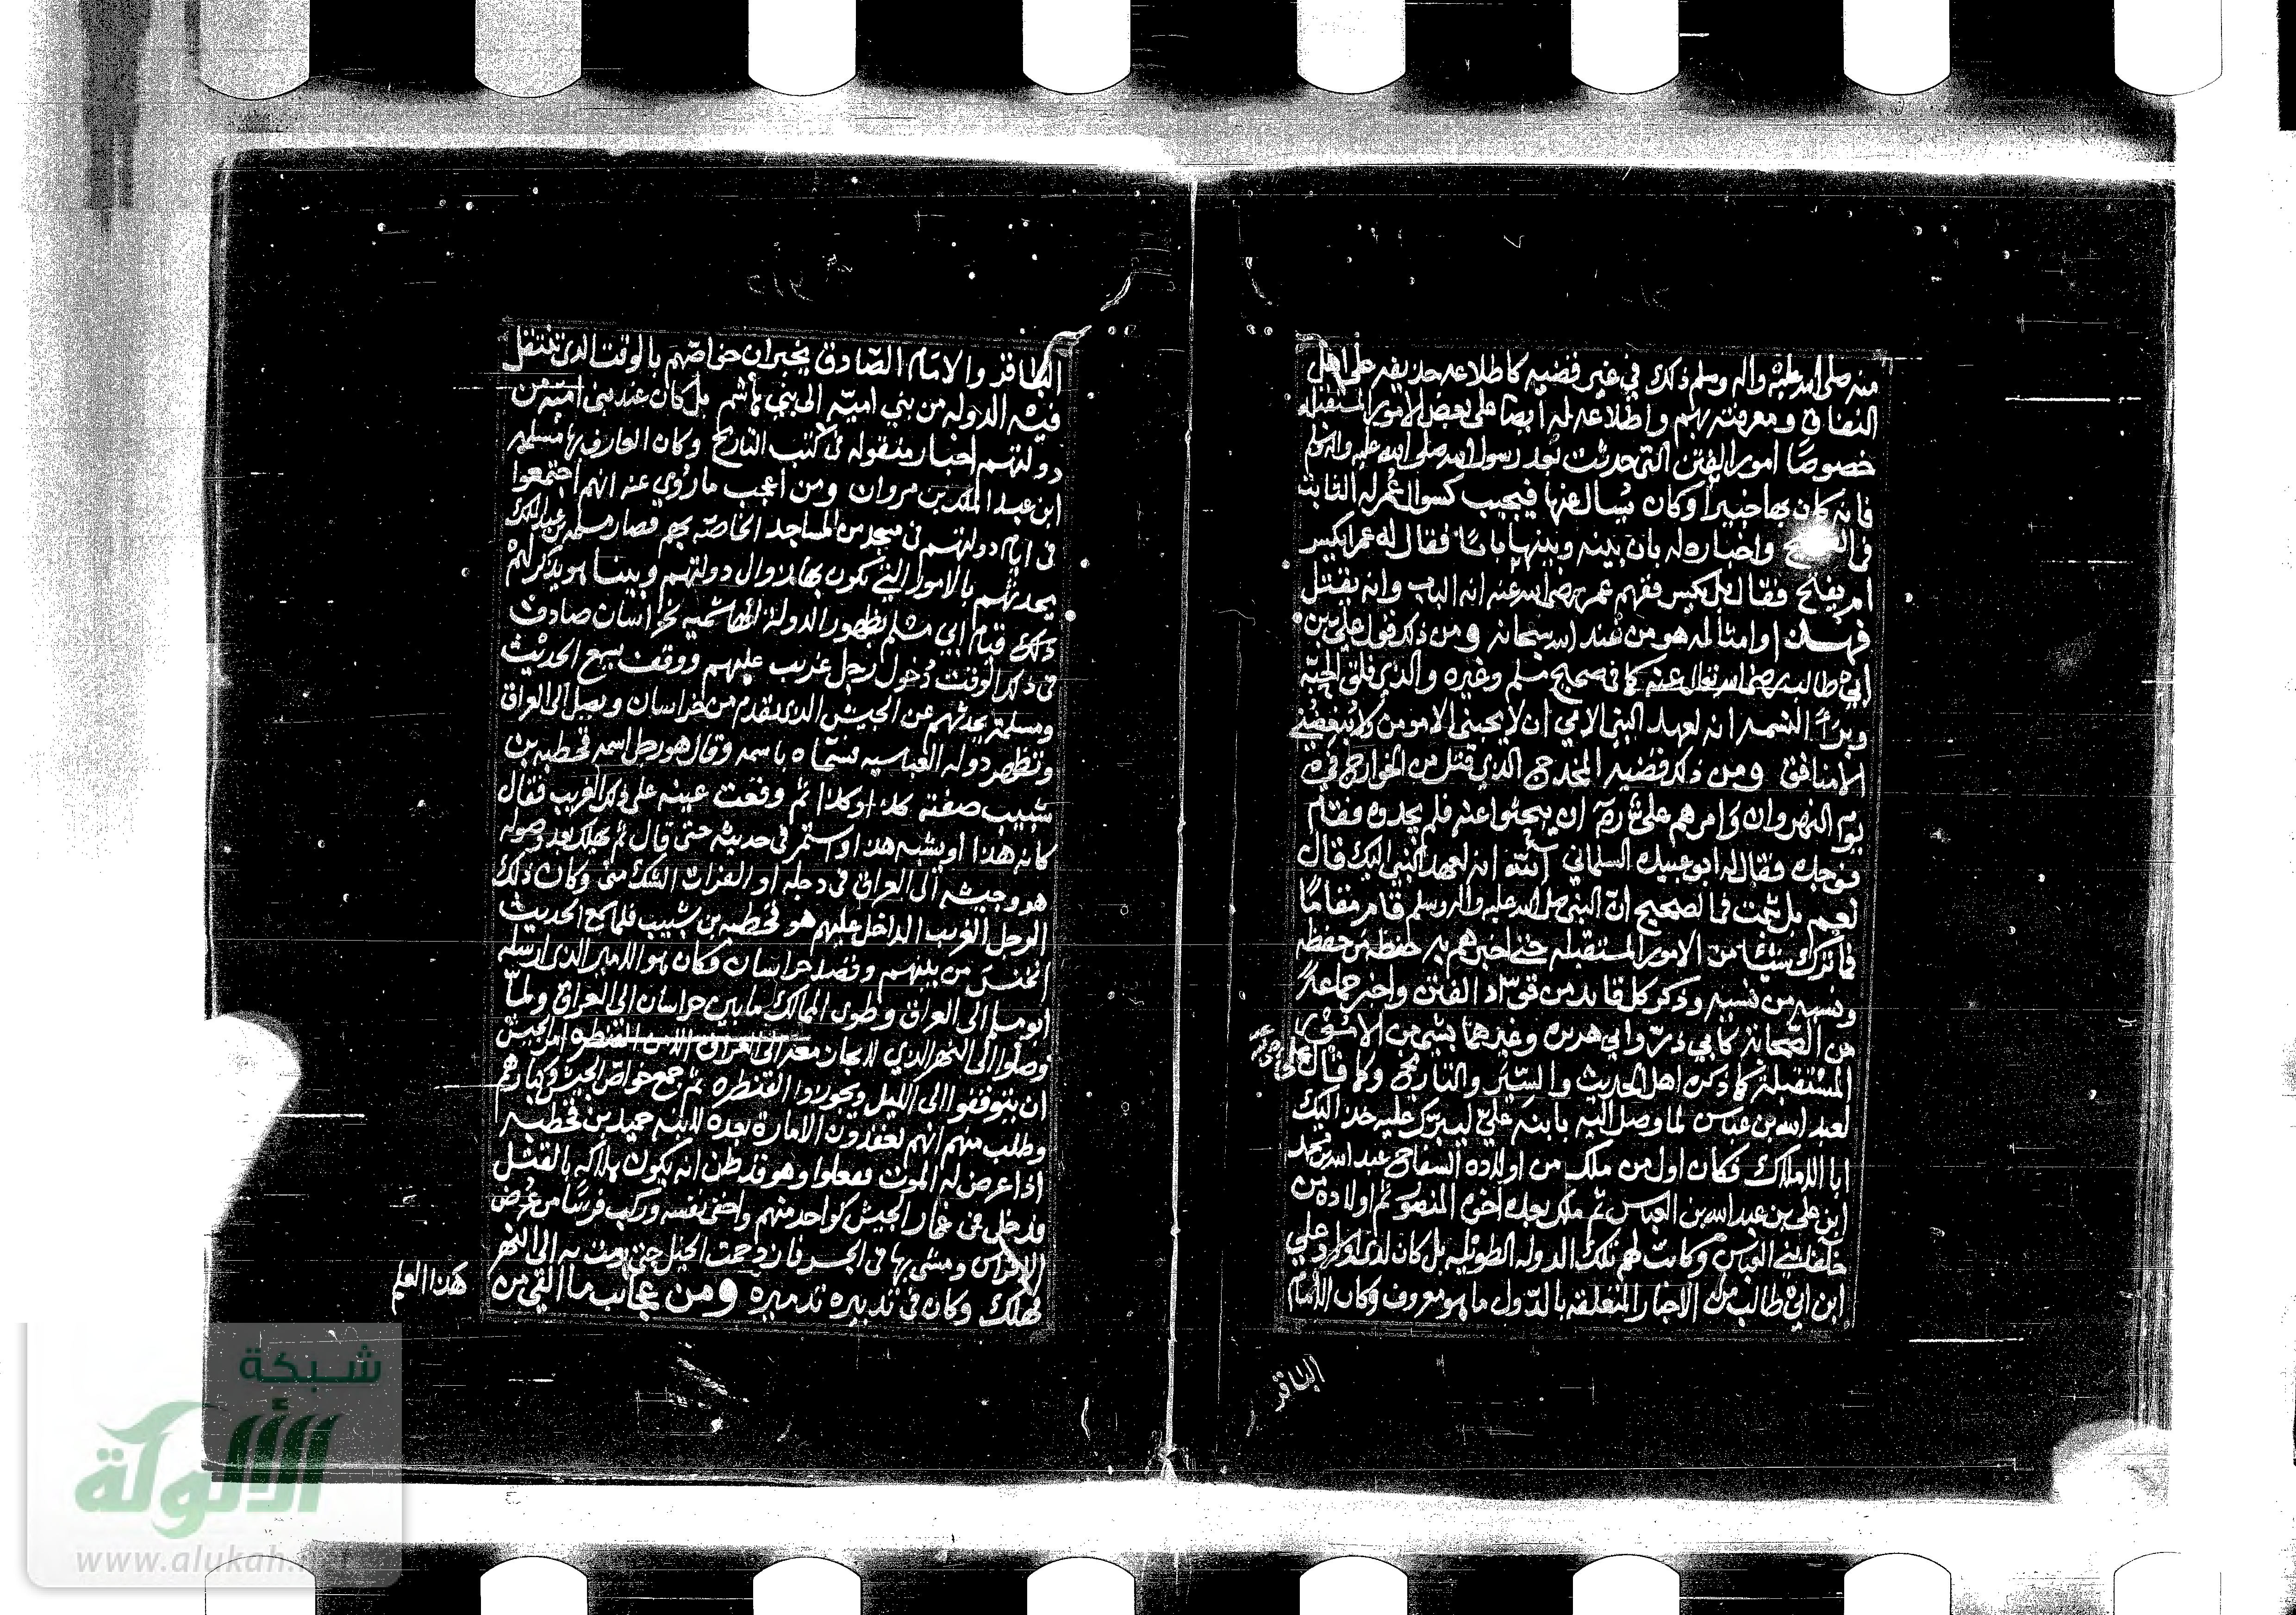 منه صلى الله عليه واله وسلم ذلك في غير قضيه كاطلاعه حذيفه على اهل
النفاق ومعرفته بهم واطلاعه له ايضا على بعض الامور المستقبله
خصوصا امور الفتن التي حدثت بعد رسول الله صلى الله عليه واله وسلم
فانه كان بها خبيرا وكان يسال عنها فيجيب كسوال عمر له الثابت
في واخباره له بان بينه وبينها بابا فقال له عمر ايكسر
ام يفتح فقال بل يكسر ففهم عمر رضي الله عنه انه الباب وانه يقتل
فهذا وامثاله هو من عند الله سبحانه ومن ذلك قول علي بن
ابي طالب رضي الله تعالى عنه كما في صحيح مسلم وغيره والذي فلق الحبة
وبرأ النسمه انه لعهد النبي الامي ان لا يحبني الا مومن ولا يبغضني
الا منافق ومن ذلك قضية المخدج الذي قتل من الخوارج في
يوم النهروان وامرهم علي ان يبحثوا عنه فلم يجدوه فقام
فوجده فقال له ابو عبيدة السلماني انه لعهد النبي اليك قال
نعم بل ثبت في الصحيح ان النبي صلى الله عليه واله وسلم قام مقاما
فما ترك شيئا من الامور المستقبله حتى اخبرهم به حفظه من حفظه
ونسيه من نسيه وذكر كل قايد من قواد الفتن واخبر جماعة
من الصحابة كابي ذر وابي هريره وغيرهما بشي من الاشياء
المستقبلة كما ذكره اهل الحديث والسير والتاريخ وكما قال علي
لعبد الله بن عباس لما وصل اليه بابنه علي ليبرك عليه خذ اليك
ابا الاملاك فكان اول من ملك من اولاده السفاح عبد الله بن محمد
ابن علي بن عبد الله بن العباس ثم ملك بعده اخوه المنصور ثم اولاده من
خلفاء بني العباس وكانت لهم تلك الدوله الطويله بل كان لدى اولاد علي
ابن ابي طالب من الاخبار المتعلقه بالدول ما هو معروف وكان الامام
الباقر
الباقر والامام الصادق يخبران خواصهم بالوقت الذي تنتقل
فيه الدوله من بني امية الى بني هاشم بل كان عند بني امية من
دولتهم اخبار منقوله في كتب التاريخ وكان العارف بها مسلمه
ابن عبد الملك بن مروان ومن اعجب ما روي عنه انهم اجتمعوا
في ايام دولتهم في مسجد من المساجد الخاصة بهم فصار مسلمه بن عبد الملك
يحدثهم بالامور التي تكون بها زوال دولتهم وبينما هو يذكر لهم
ذلك قيام ابي مسلم بظهور الدولة الهاشميه بخراسان صادف
في ذلك الوقت دخول رجل غريب عليهم ووقف يسمع الحديث
ومسلمة يحدثهم عن الجيش الذي يقدم من خراسان ويصل الى العراق
وتظهر دولة العباسيه فسماه باسمه وقال هو رجل اسمه قحطبه بن
شبيب صفته كذا وكذا ثم وقعت عينه على ذلك الغريب فقال
كانه هذا او يشبه هذا واستمر في حديثه حتى قال ثم يهلك بعد وصوله
هو وجيشه الى العراق في دجله او الفرات الشك مني وكان ذلك
الرجل الغريب الداخل عليهم هو قحطبه بن شبيب فلما سمع الحديث
من بينهم وقصد خراسان فكان هو الامير الذي ارسله
ابو مسلم الى العراق وطوى الممالك ما بين خراسان الى العراق ولما
وصلوا الى النهر الذي امر الجيش
ان يتوقفوا الى الليل ويجوزوا القنطره ثم جمع خواص الجيش وكبارهم
وطلب منهم انهم يعقدون الامارة بعده لابنه حميد بن قحطبه
اذا عرض له الموت ففعلوا وهو قد ظن انه يكون هلاكه بالقتل
فدخل في غمار الجيش كواحد منهم واخفى نفسه وركب فرسا من عرض
الافراس ومشى بها في الجسر فازدحمت الخيل حتى به الى النهر
فهلك وكان في تدبيره تدميره ومن عجائب ما القي من
هذا العلم
شبكة
الألوكة
www.alukah.net